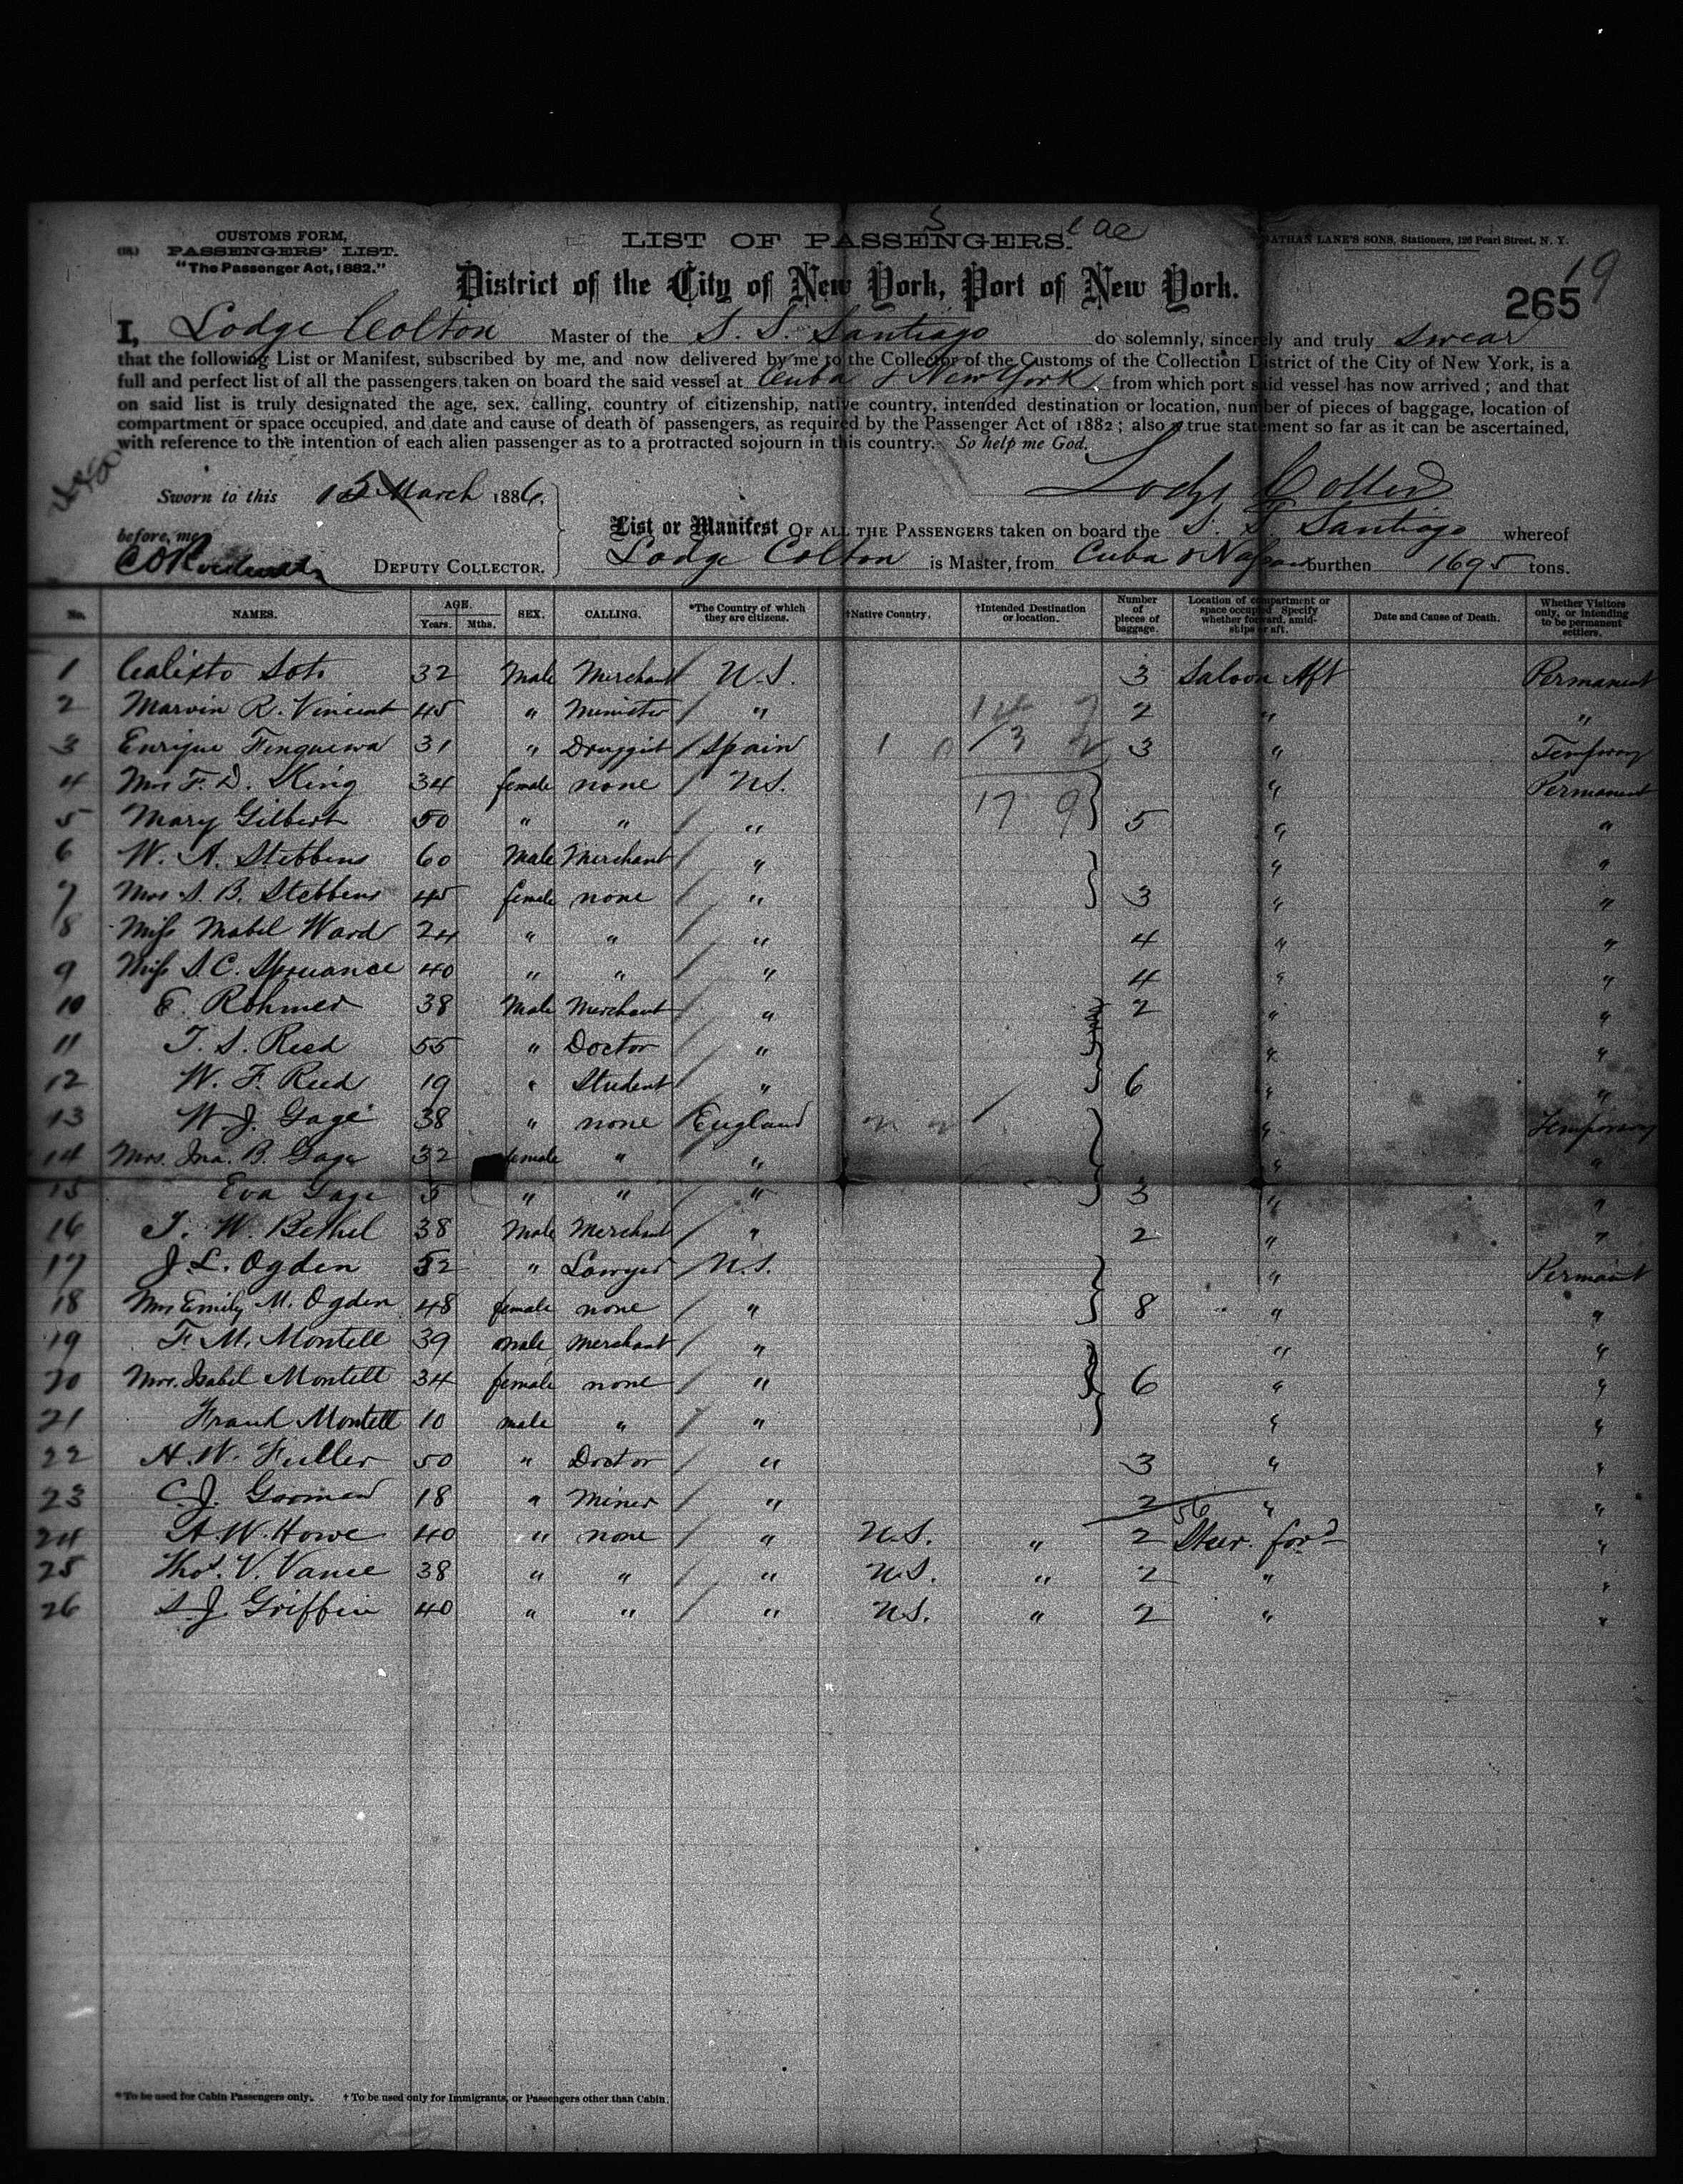 CUSTOMS FORM,
PASSENGERS' LIST.
"The Passenger Act, 1882."
LIST OF PASSENGERS.
LANE'S SONS, Stationers, 126 Pearl Street, N. Y.
District of the City of New York, Port of New York.
19
265
I, Lodge Colton Master of the S. S. Santiago do solemnly, sincerely and truly swear
that the following List or Manifest, subscribed by me, and now delivered by me to the Collector of the Customs of the Collection District of the City of New York, is a
full and perfect list of all the passengers taken on board the said vessel at Cuba & New York from which port said vessel has now arrived; and that
on said list is truly designated the age, sex, calling, country of citizenship, native country, intended destination or location, number of pieces of baggage, location of
compartment or space occupied, and date and cause of death of passengers, as required by the Passenger Act of 1882; also a true statement so far as it can be ascertained,
with reference to the intention of each alien passenger as to a protracted sojourn in this country. So help me God.
Lodge Colton
Sworn to this 15 March 1886.
before, me
DEPUTY COLLECTOR.
List or Manifest OF ALL THE PASSENGERS taken on board the S. S. Santiago whereof
Lodge Colton is Master, from Cuba & Nassau burthen 1695 tons.
No. NAMES. AGE. Years. Mths. SEX. CALLING. *The Country of which they are citizens. †Native Country. †Intended Destination or location. Number of pieces of baggage. Location of compartment or space occupied. Specify whether forward, amidships or aft. Date and Cause of Death. Whether Visitors only, or intending to be permanent settlers.
1 Calixto Soto 32 Male Merchant U.S. 3 Saloon Aft Permanent
2 Marvin R. Vincent 45 " Minister " 2 " "
3 Enrique 31 " Druggist Spain 3 "
4 Mrs F. D. King 34 female none U.S. " Permanent
5 Mary Gilbert 50 " " " 5 " "
6 W. A. Stebbins 60 Male Merchant " " "
7 Mrs S. B. Stebbins 45 female none " 3 " "
8 Miss Mabel Ward 24 " " " 4 " "
9 Miss S. C. Spruance 40 " " " 4 " "
10 E. Rohmer 38 Male Merchant " 2 " "
11 T. S. Reed 55 " Doctor " " "
12 W. F. Reed 19 " Student " 6 " "
13 W. J. Gage 38 " none England " Temporary
14 Mrs. Ina. B. Gage 32 female " " " "
15 Eva Gage 5 " " " 3 " "
16 T. W. Bethel 38 Male Merchant " 2 " "
17 J. L. Ogden 52 " Lawyer U.S. "
18 Mrs Emily M. Ogden 48 female none " 8 " "
19 F. M. Montell 39 male merchant " " "
20 Mrs. Isabel Montell 34 female none " 6 " "
21 Frank Montell 10 male " " " "
22 H. W. Fuller 50 " Doctor " 3 " "
23 C. J. 18 " Miner " 2 " "
56
24 A. W. Howe 40 " none " U.S. " 2 Steer. ford "
25 Thos. V. Vance 38 " " " U.S. " 2 " "
26 S. J. Griffin 40 " " " U.S. " 2 " "
*To be used for Cabin Passengers only. † To be used only for Immigrants, or Passengers other than Cabin.